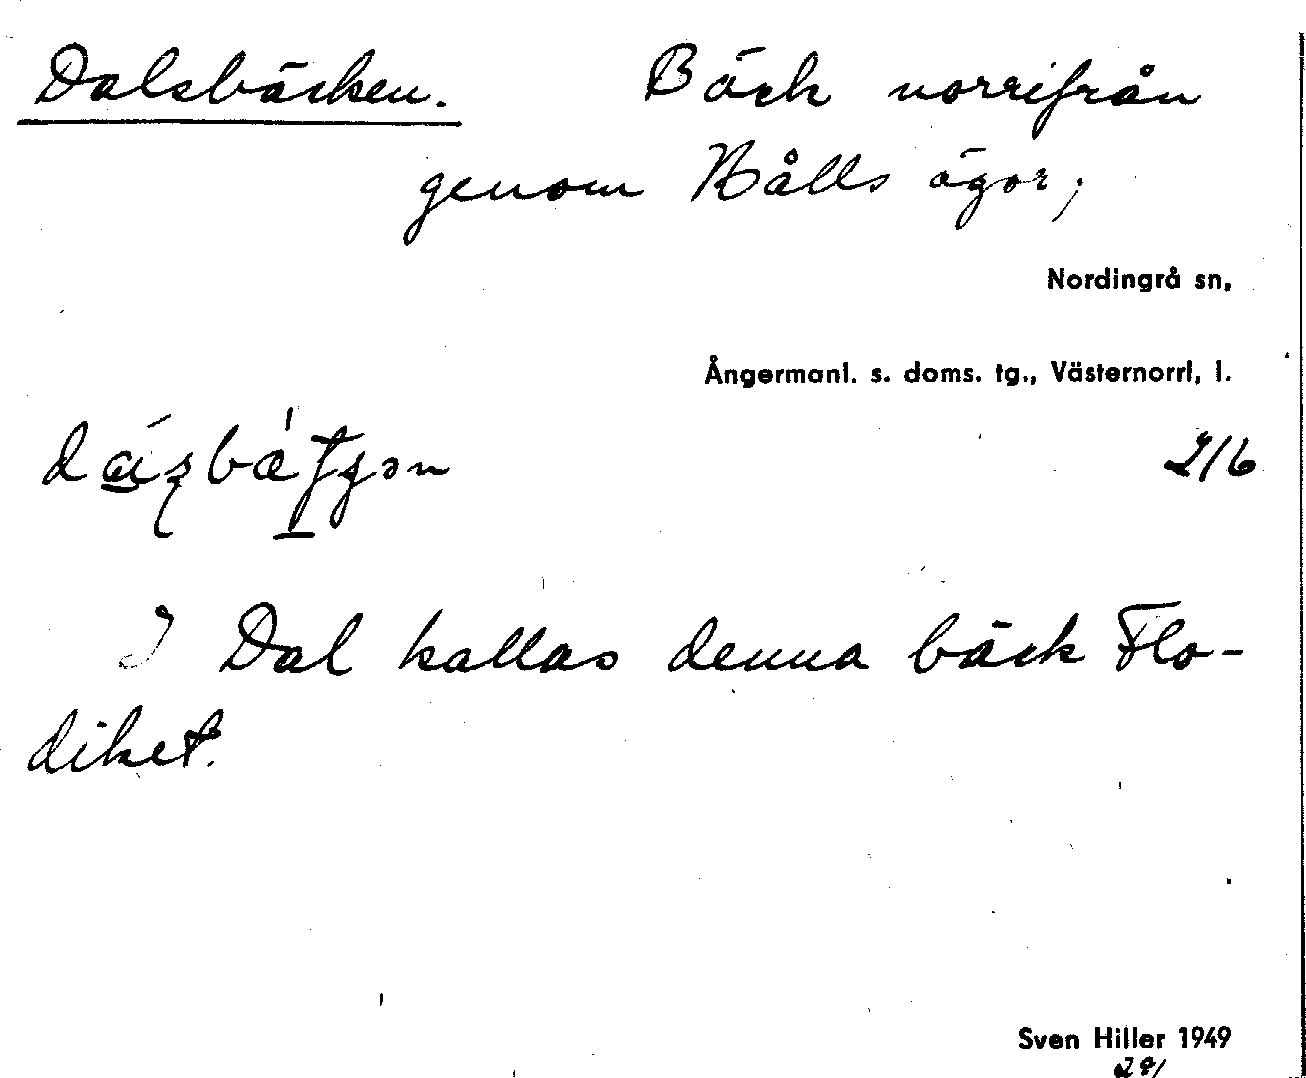 Dalsbäcken. Bäck norrifrån
genom Hålls ägor;
Nordingrå sn,
Ångermanl. s. doms. tg., Västernorrl, l.
2/6
I Dal kallas denna bäck Flo-
diket.
Sven Hiller 1949